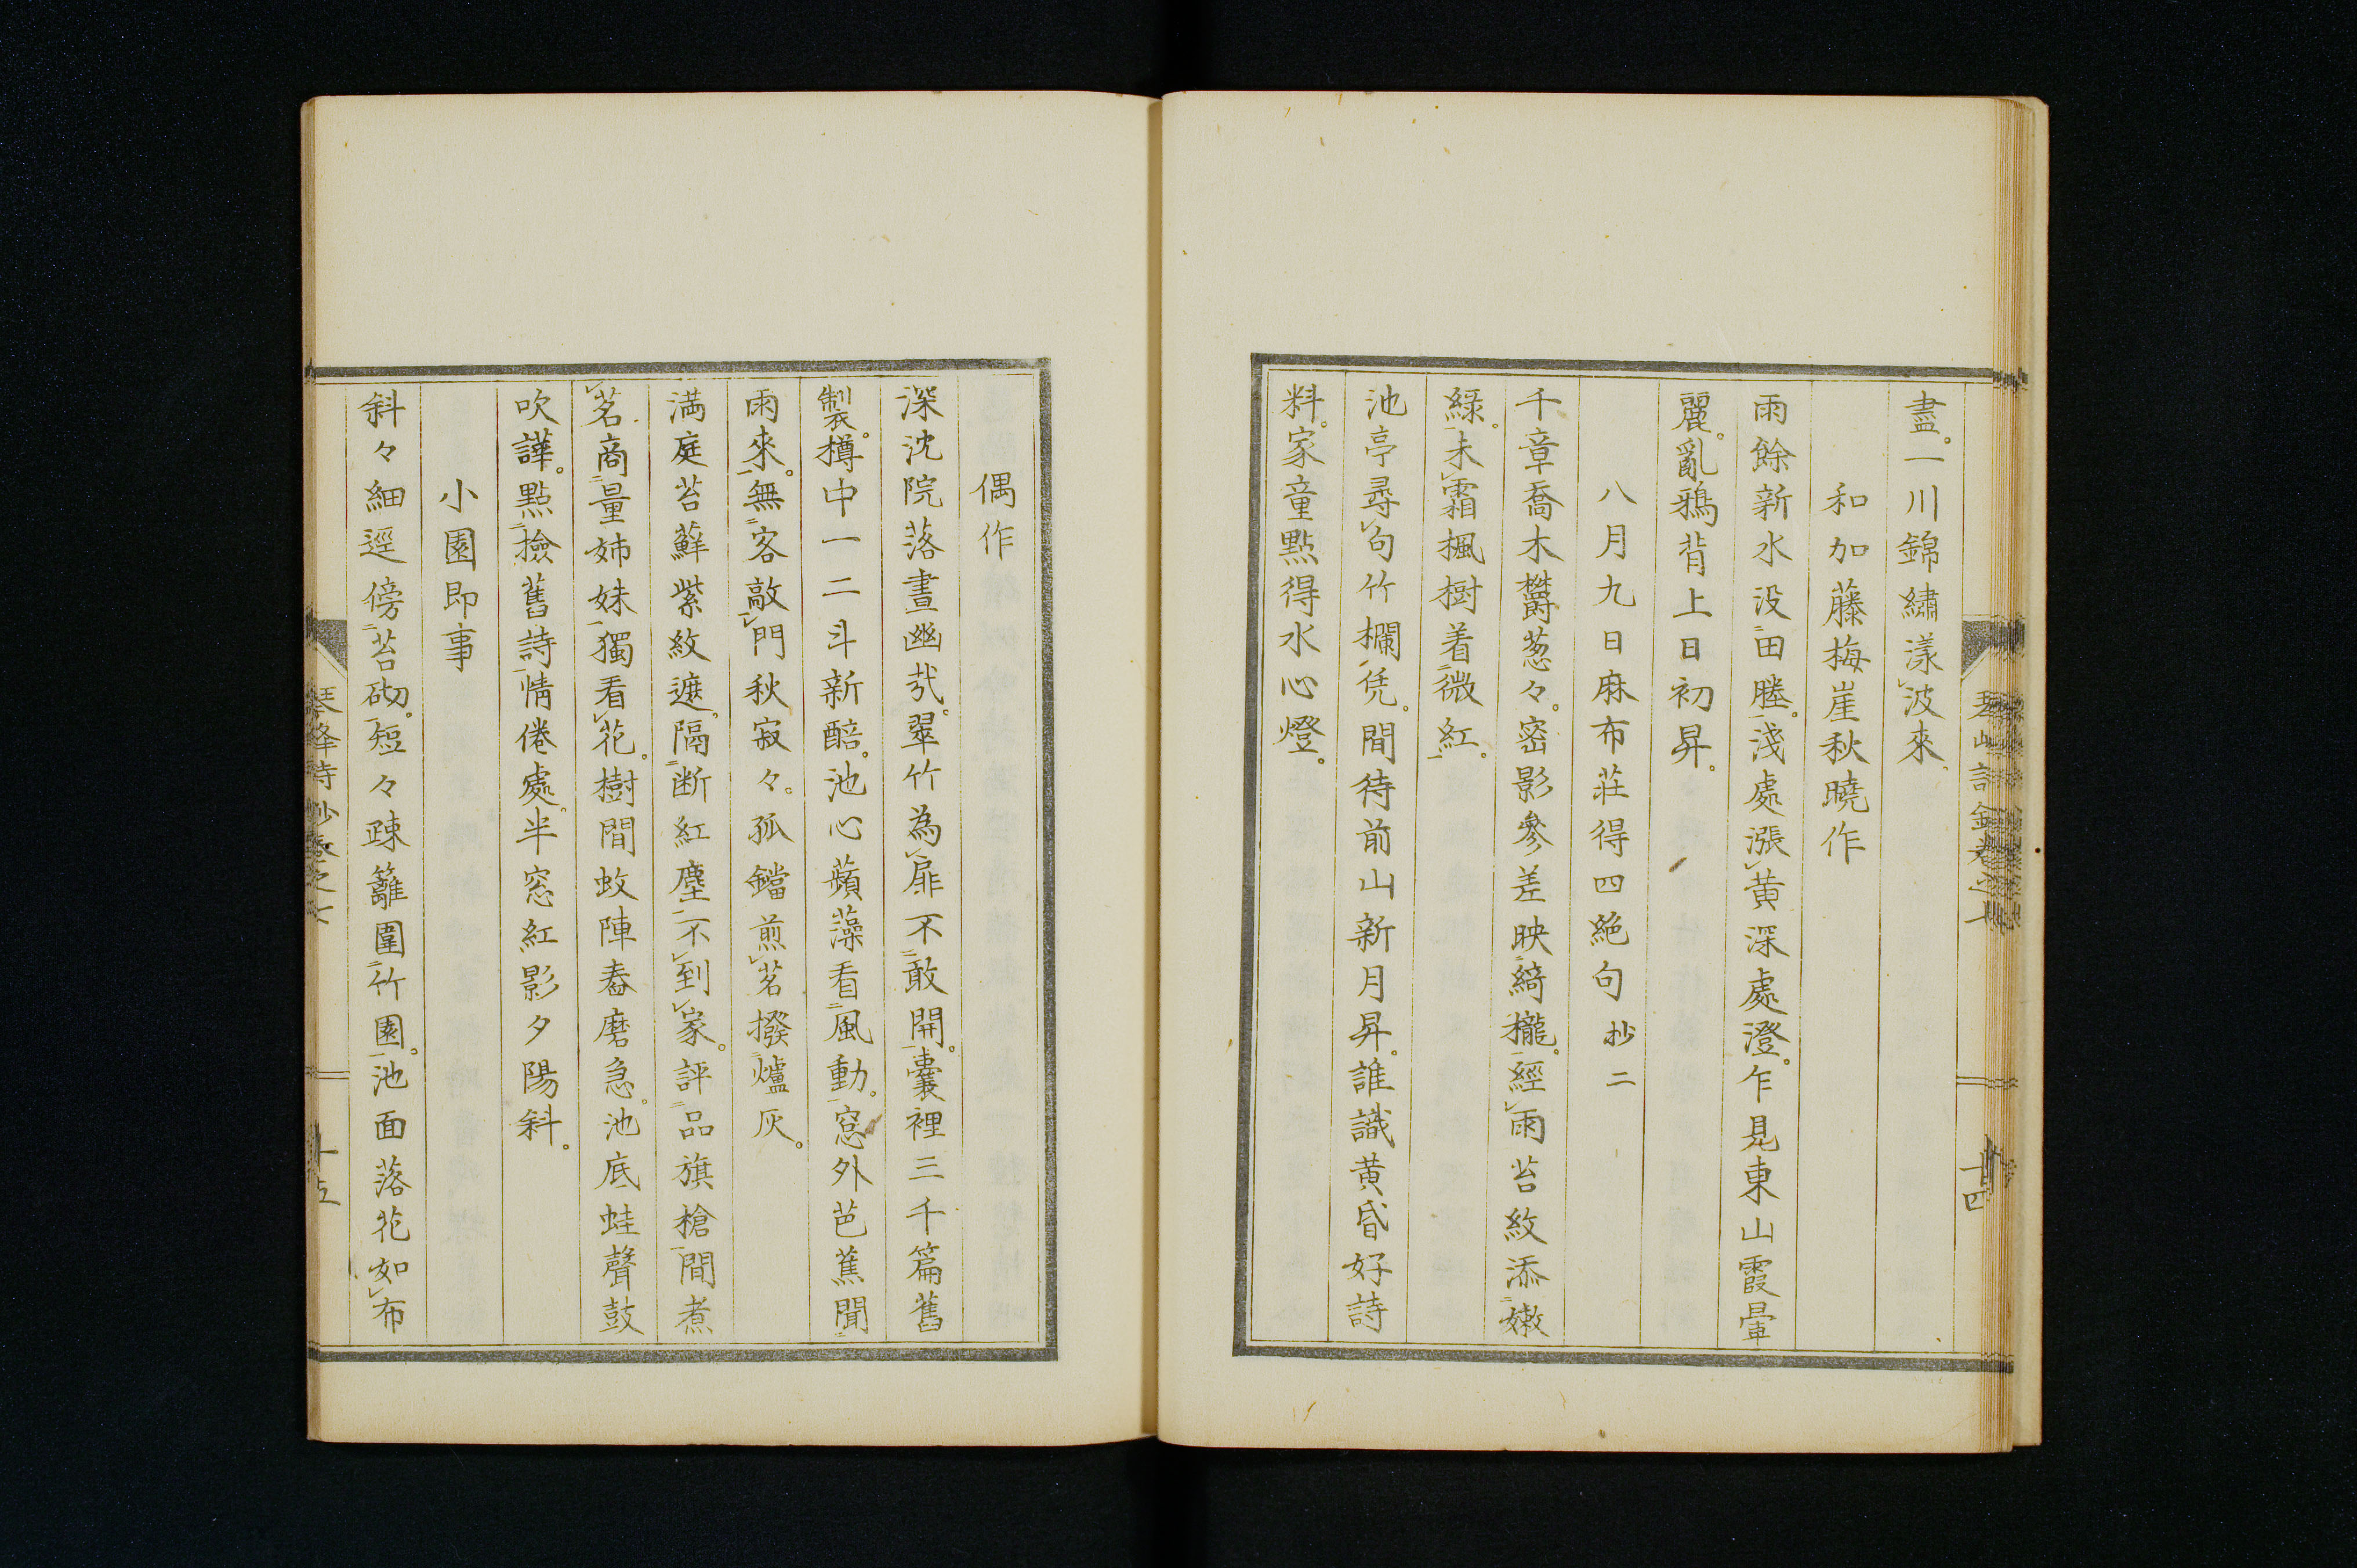 盡。一川錦繡漾波來
和加藤梅崖秋曉作
雨餘新水没田塍。淺處漲黄深處澄。乍見東山霞暈
麗。亂鴉背上日初昇。
八月九日麻布莊得四絶句 抄二
千章喬木欝葱々。密影參差映綺櫳。經雨苔紋添嫩
綠。未霜楓樹着微紅。
池亭尋句竹欄凭。間待前山新月昇。誰識黄昏好詩
料。家童點得水心燈。
十四
偶作
深沈院落晝幽哉。翠竹為扉不敢開。囊裡三千篇舊
製。樽中一二斗新醅。池心蘋藻看風動。窓外芭蕉聞
雨來。無客敲門秋寂々。孤鐺煎茗撥爐灰。
満庭苔蘚紫紋遮。隔断紅塵不到家。評品旗槍間煮
茗。商量姉妹獨看花。樹間蚊陣舂磨急。池底蛙聲鼓
吹譁。點撿舊詩情倦處。半窓紅影夕陽斜。
小園即事
斜々細逕傍苔砌。短々踈籬圍竹園。池面落花如布
詩抄卷之七
十五